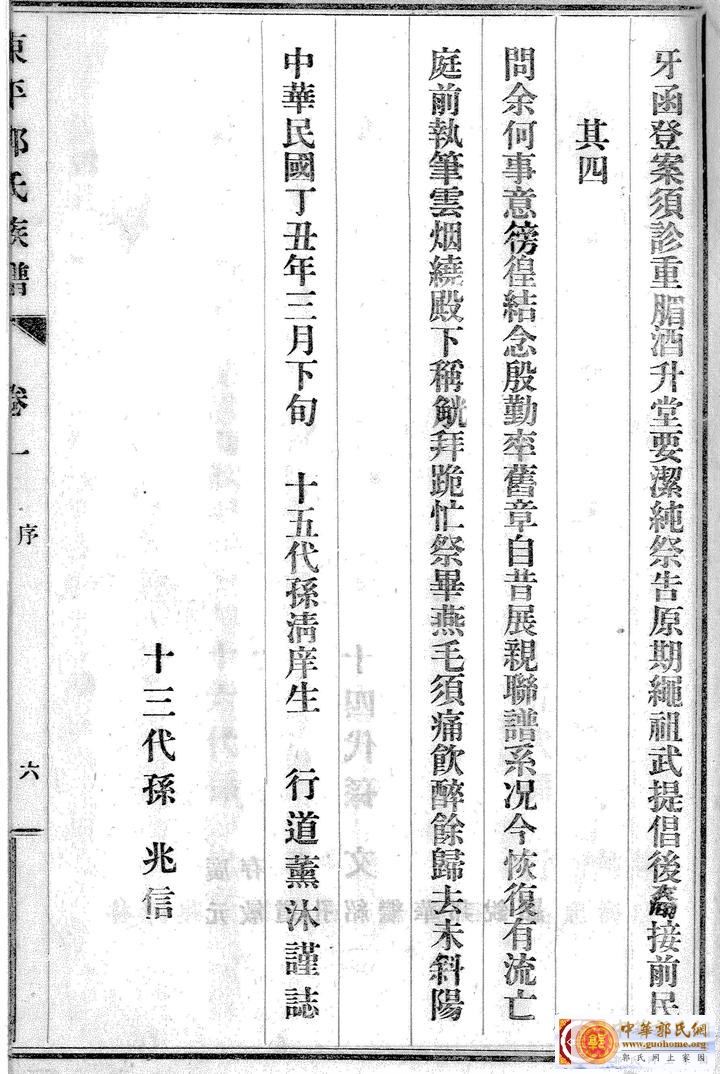 牙函登案須診重腽酒升堂要潔純祭告原期繩祖武提倡後裔接前民
其四
問余何事意徬徨結念殷勤率舊章自昔展親聯譜系况今恢復有流亡
庭前執筆雲烟繞殿下稱觥拜跪忙祭畢燕毛須痛飲醉餘歸去未斜陽
中華民國丁丑年三月下旬 十五代孫清庠生 行道薰沐謹誌
十三代孫 兆信
東平郭氏族譜 卷一 序 六
中華郭氏網
www.guohome.org
郭氏网上家园